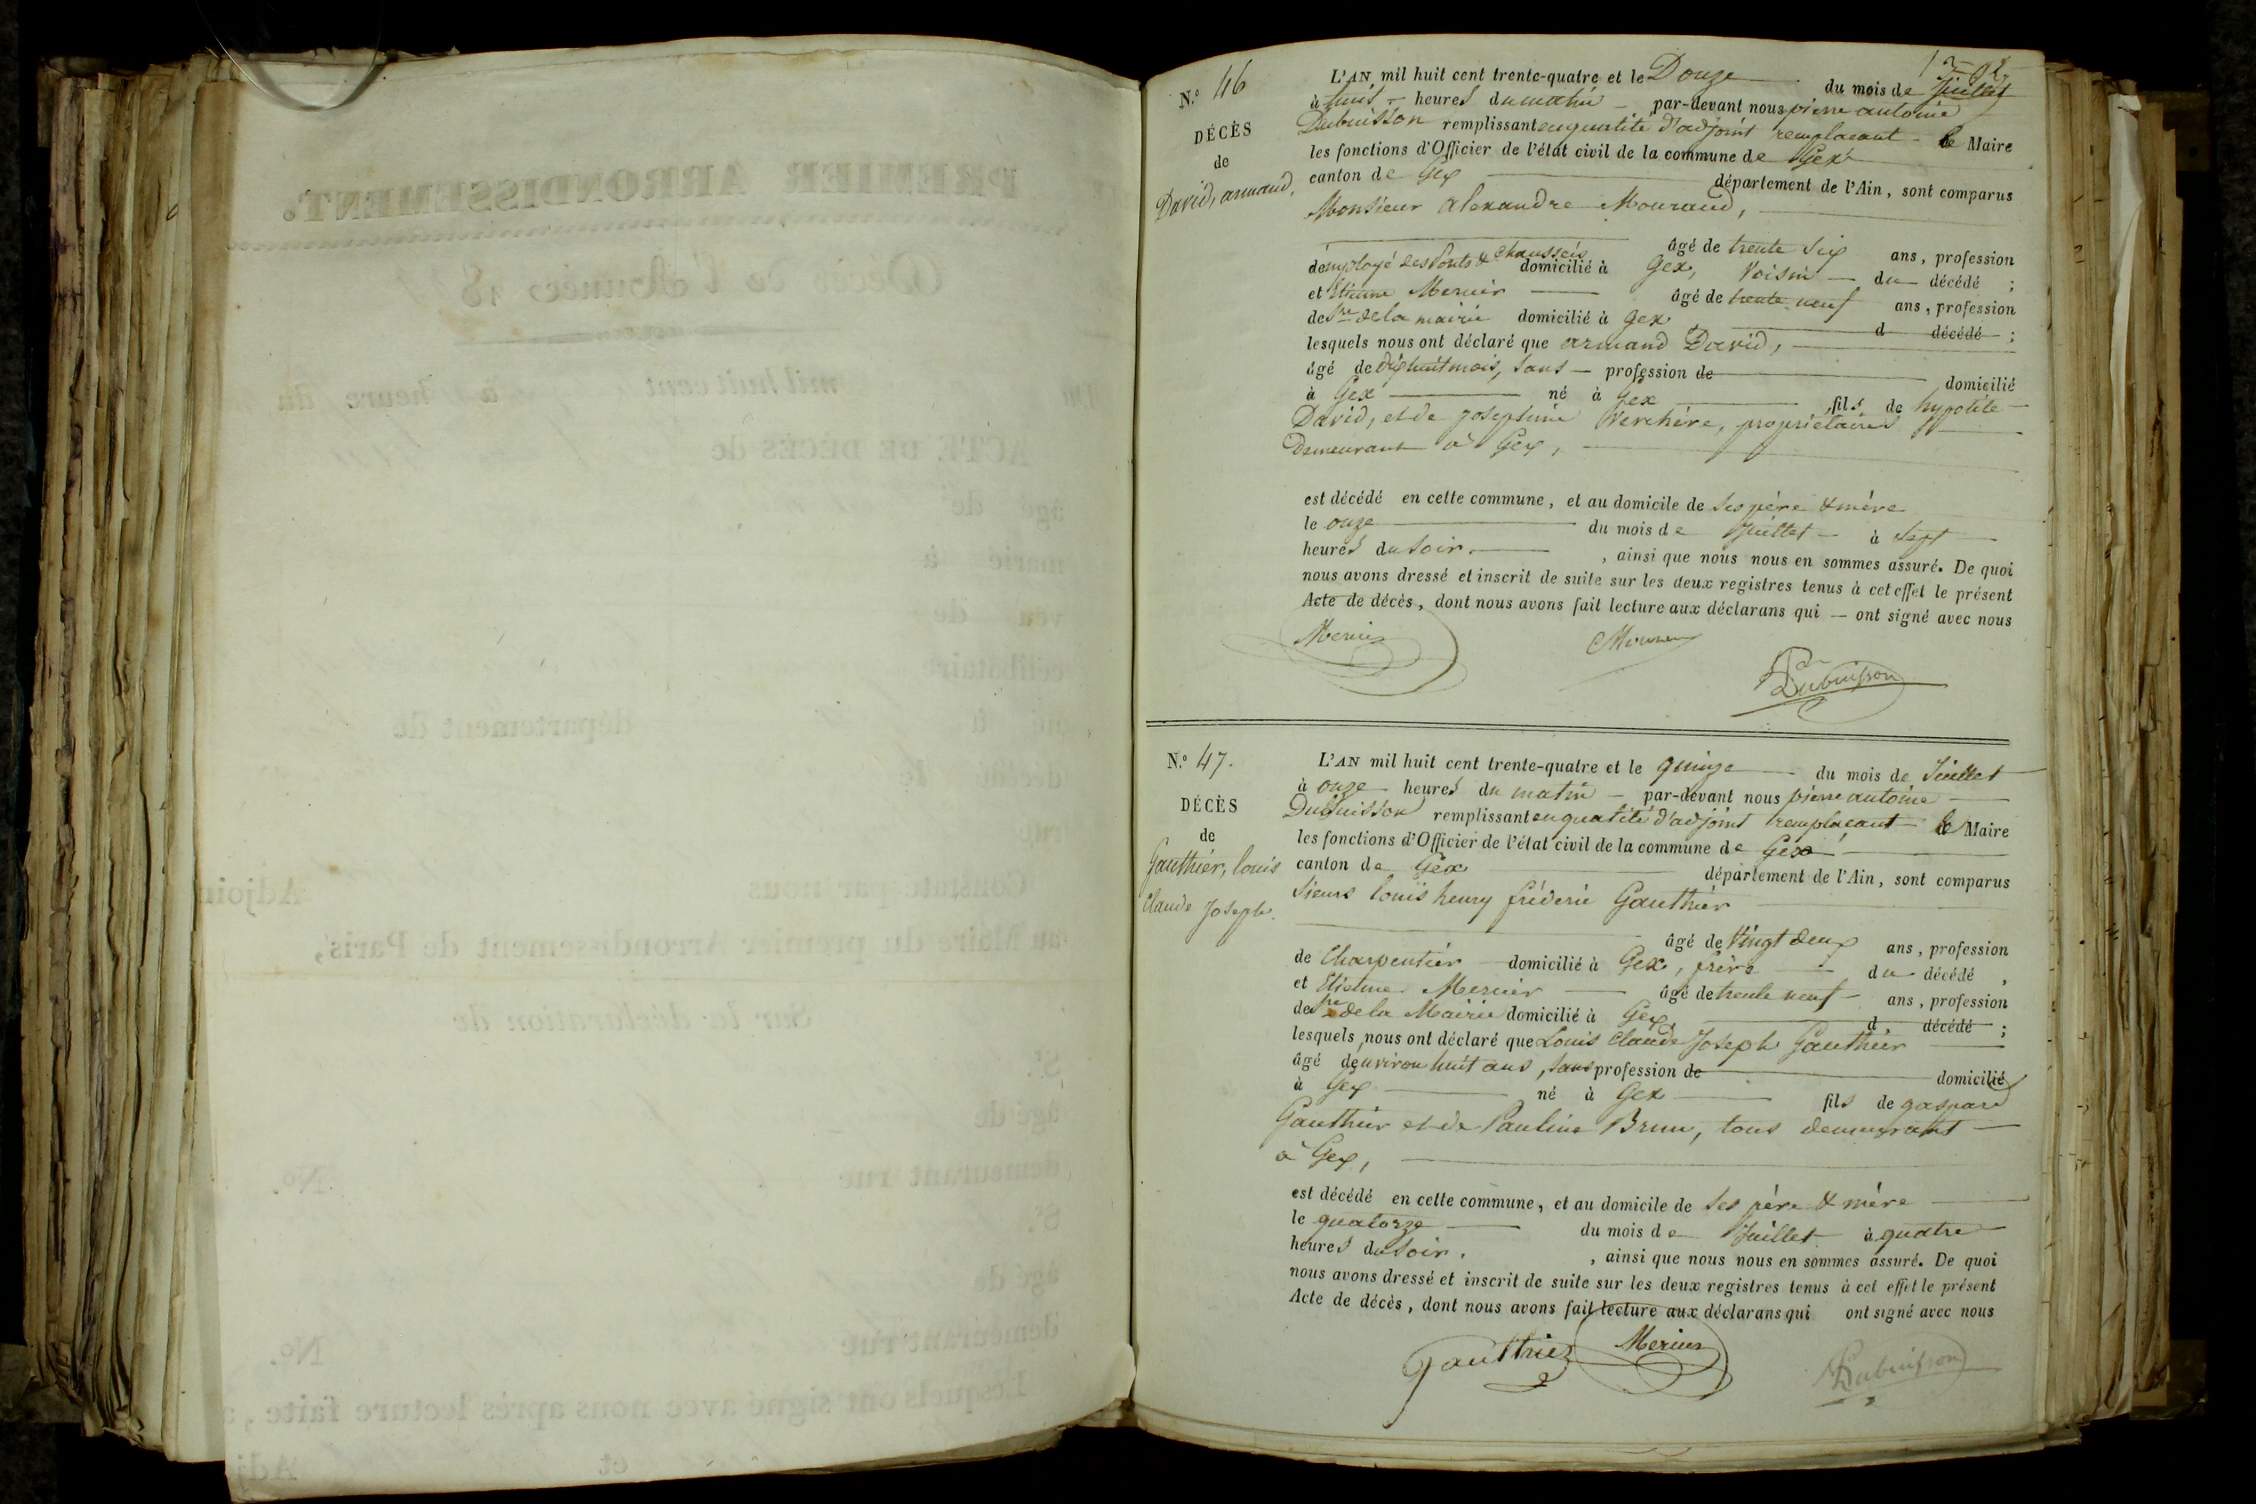 N.º 46
DÉCÈS
de
David, armand,
L'AN mil huit cent trente-quatre et le Douze du mois de Juillet
à huit heures du matin par-devant nous pierre antoine
Dubuisson remplissant en qualité d'adjoint remplacant le Maire
les fonctions d'Officier de l'état civil de la commune de Gex
canton de Gex département de l'Ain, sont comparus
Monsieur alexandre Mouraud,
âgé de trente six ans, profession
d'employé des Ponts & chaussées domicilié à Gex, Voisin du décédé ;
et Etienne Mercier âgé de trente neuf ans, profession
de Sre de la mairie domicilié à Gex d décédé ;
lesquels nous ont déclaré que armand David,
âgé de dix huit mois, sans profession de domicilié
à Gex né à Gex fils de hypolite
David, et de josephine Verchère, propriétaires
Demeurant à Gex,
est décédé en cette commune, et au domicile de ses père & mère
le onze du mois de Juillet à sept
heures du soir. , ainsi que nous nous en sommes assuré. De quoi
nous avons dressé et inscrit de suite sur les deux registres tenus à cet effet le présent
Acte de décès, dont nous avons fait lecture aux déclarans qui ont signé avec nous
Mercier
Dubuisson
N.º 47.
DÉCÈS
de
Gauthier, louis
Claude Joseph.
L'AN mil huit cent trente-quatre et le quinze du mois de Juillet
à onze heures du matin par-devant nous pierre antoine
Dubuisson remplissant en qualité d'adjoint remplacant le Maire
les fonctions d'Officier de l'état civil de la commune de Gex
canton de Gex département de l'Ain, sont comparus
Sieurs louis henry fréderic Gauthier
âgé de Vingt deux ans, profession
de Charpentier domicilié à Gex, frère du décédé ,
et Etienne Mercier âgé de trente neuf ans, profession
de Sre de la Mairie domicilié à Gex, d décédé ;
lesquels nous ont déclaré que Louis Claude Joseph Gauthier
âgé d'environ huit ans, sans profession de domicilié
à Gex né à Gex fils de gaspard
Gauthier et de Pauline Brun, tous demeurant
à Gex,
est décédé en cette commune, et au domicile de ses père & mère
le quatorze du mois de Juillet à quatre
heures du soir. , ainsi que nous nous en sommes assuré. De quoi
nous avons dressé et inscrit de suite sur les deux registres tenus à cet effet le présent
Acte de décès, dont nous avons fait lecture aux déclarans qui ont signé avec nous
Gauthier Mercier Dubuisson